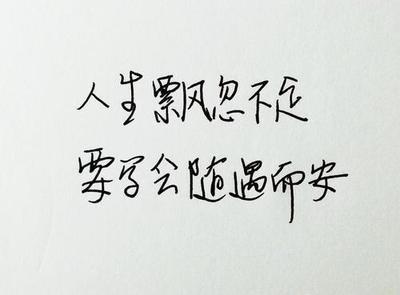 人生飘风忽不定
要学会随遇而安